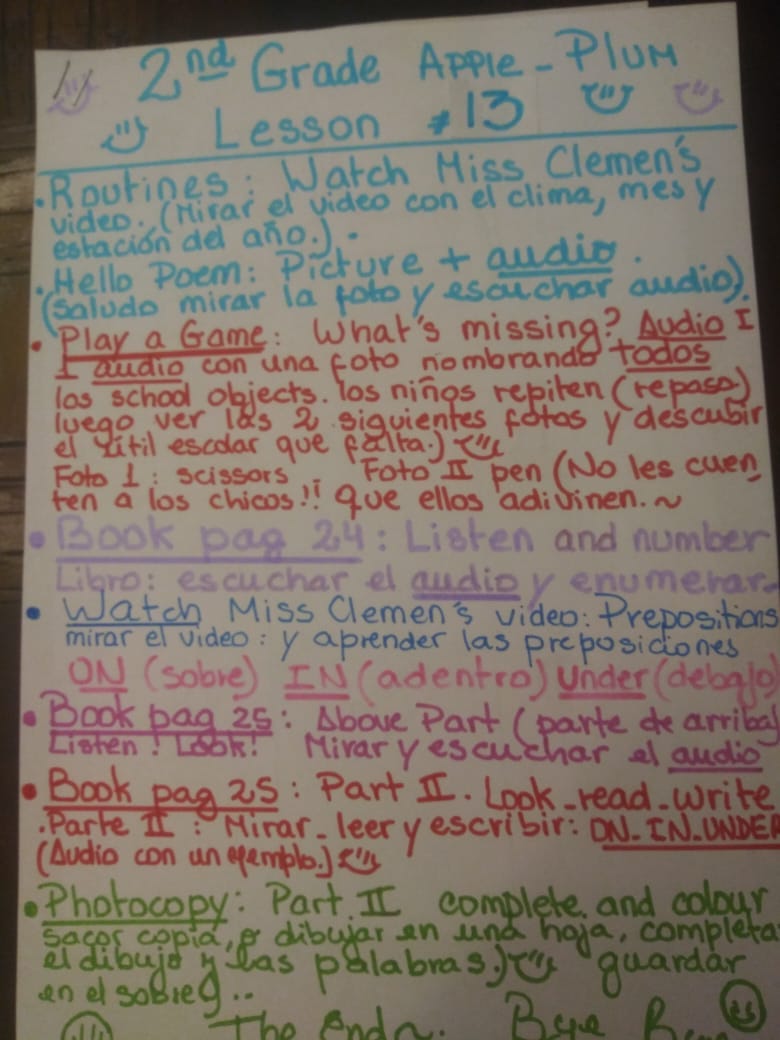 2nd Grade APPle - PLUM
Lesson #13
• Routines: Watch Miss Clemen's
video. (Mirar el video con el clima, mes y
estación del año.). -
• Hello Poem: Picture + audio.
(Saludo mirar la foto y escuchar audio).
• Play a Game: What's missing? Audio I
1 audio con una foto nombrando todos
los school objects. los niños repiten (repaso)
luego ver las 2 siguientes fotos y descubir
el útil escolar que falta.)
Foto 1: scissors - Foto II pen (No les cuen
ten a los chicos!! que ellos adivinen. ~
• Book pag 24: Listen and number
Libro: escuchar el audio y enumerar.
• Watch Miss Clemen's video: Prepositions
mirar el video: y aprender las preposiciones
ON (sobre) IN (adentro) Under (debajo)
• Book pag 25: Above Part (parte de arriba)
Listen! Look! Mirar y escuchar el audio
• Book pag 25: Part II. Look_read_write
. Parte II: Mirar_leer y escribir: ON_IN_UNDER
(Audio con un ejemplo.)
• Photocopy: Part II complete and colour
sacar copia, o dibujar en una hoja, completa
el dibujo y las palabras.) guardar
en el sobre...
The End~. Bye Bye